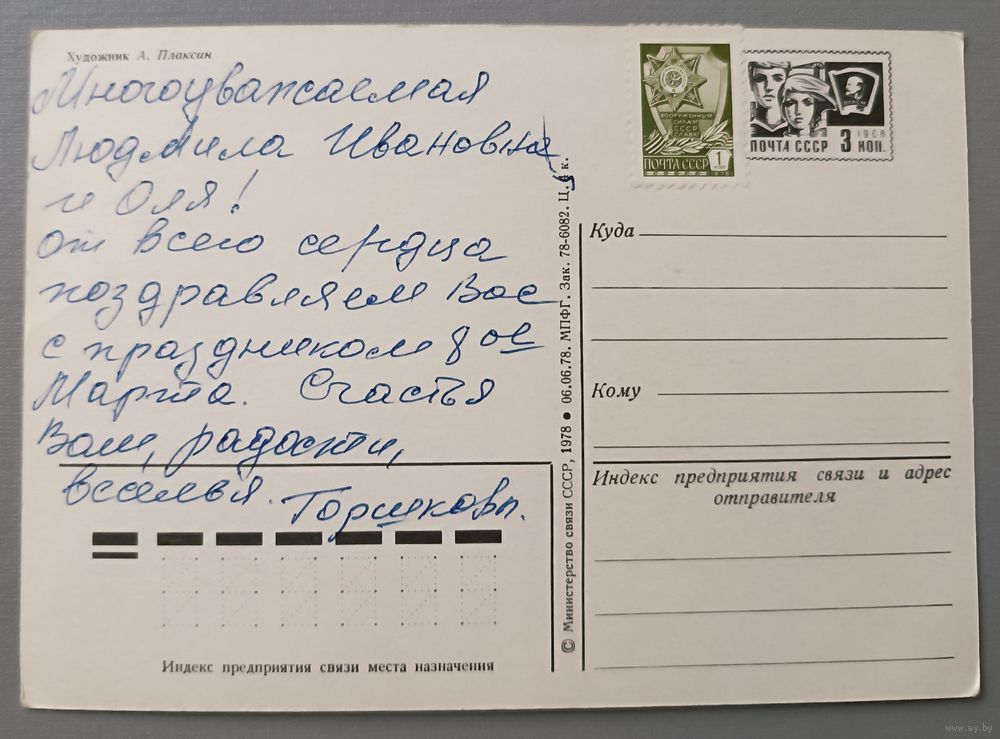 Художник А. Плаксин
Многоуважаемая
Людмила Ивановна
и Оля!
от всего сердца
поздравляем Вас
с праздником 8 ое
Марта. Счастья
Вам, радости,
веселья.
Горшковы.
Индекс предприятия связи места назначения
© Министерство связи СССР, 1978 ● 06.06.78. МПФГ. Зак. 78-6082. Ц. 4 к.
ВООРУЖЕННЫМ
СИЛАМ
СССР
СЛАВА!
ПОЧТА СССР 1 КОП
1976
1966
ПОЧТА СССР 3 КОП.
Куда
Кому
Индекс предприятия связи и адрес
отправителя
www.ay.by